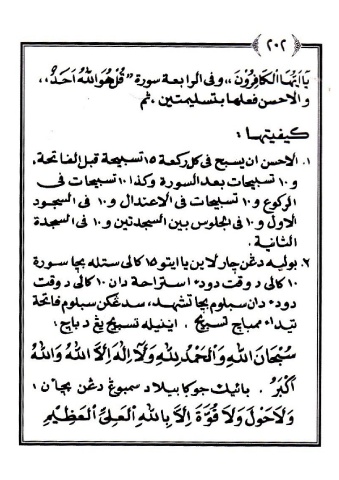 ﴿٢٠٢﴾
يَا أَيُّهَا الْكَافِرُوْنَ،، وفى الرابعة سورة " قُلْ هُوَ اللهُ أَحَدٌ ،،
والاحسن فعلها بتسليمتين . ثم
كيفيتها :
١. الاحسن ان يسبح فى كل ركعة ١٥ تسبيحة قبل الفاتحة,
و ١٠ تسبيحات بعد السورة وكذا ١٠ تسبيحات فى
الركوع و ١٠ تسبيحات فى الاعتدال و ١٠ فى السجود
الاول و ١٠ فى الجلوس بين السجدتين و ١٠ فى السجدة
الثانية .
٢. بوليه دغن چارلاين ياايتو ١٥ كالى ستله بچا سورة
١٠ كالى د وقت دودء استراحة دان ١٠ كالى د وقت
دودء دان سبلوم بچا تشهد، سدغكن سبلوم فاتحة
تيداء ممباچ تسبيح . اينيله تسبيح يڠ د باچ :
سُبْحَانَ اللهِ وَالْحَمْدُ لِلهِ وَلَا إِلٰهَ إِلَّا اللهُ وَاللهُ
أَكْبَرُ . بائيك جوكا بيلا د سمبوڠ دغن بچاءن :
وَلَا حَوْلَ وَلَا قُوَّةَ إِلَّا بِاللهِ الْعَلِيِّ الْعَظِيْمِ